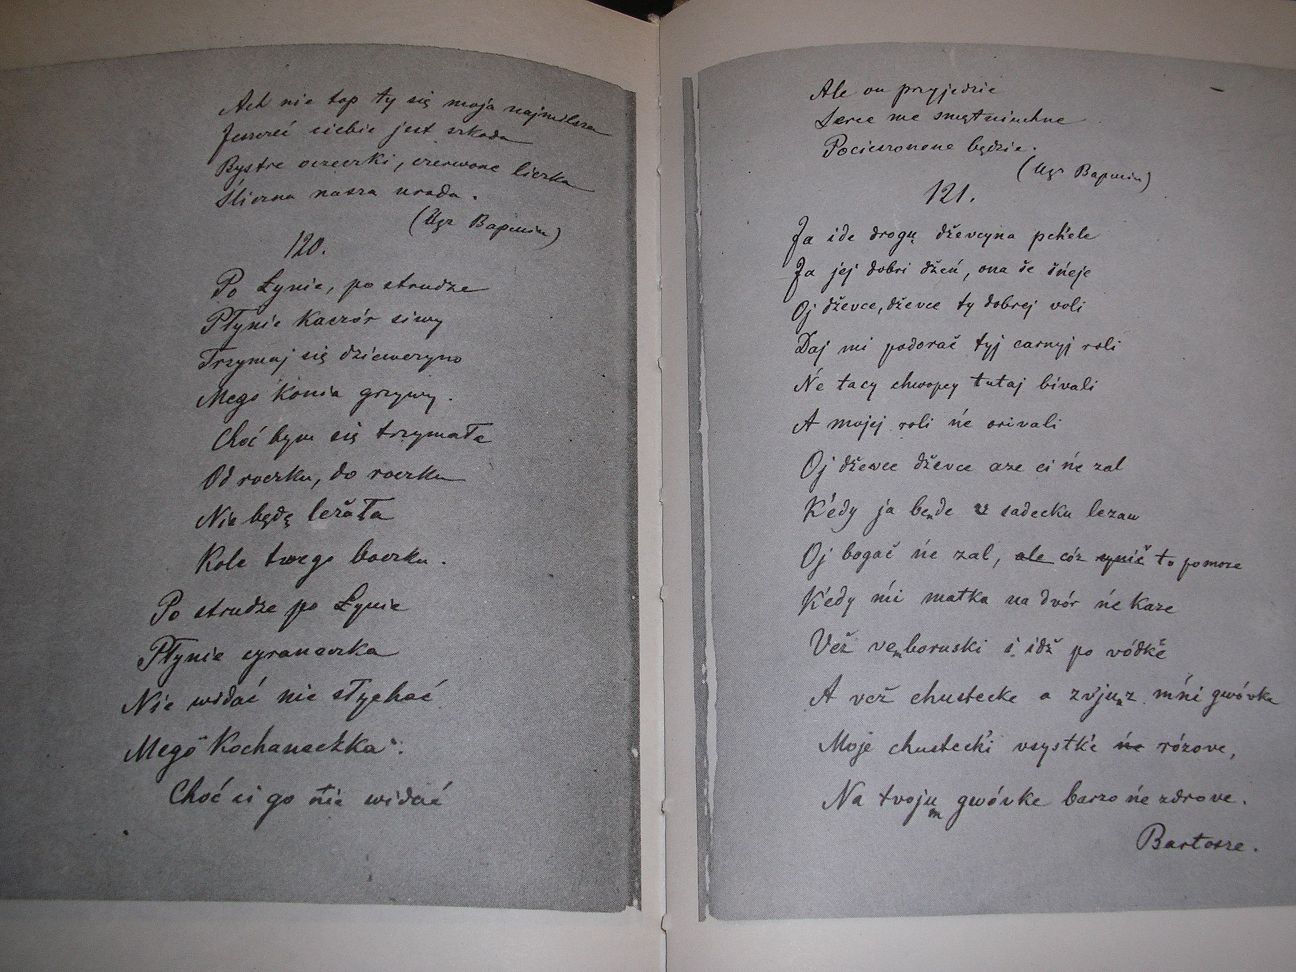 Ach nie top ty się moja najmilsza
Jeszcze ciebie jest szkoda
Bystre oczeczki, czerwone liczka
Śliczna nasza uroda.
(Ugr Bapuin)
120.
Po Łynie, po strudze
Płynie kaczór siwy
Trzymaj się dzieweczyno
Mego konia grzywy.
Choć bym się trzymała
Od roczku, do roczku
Nie będę leżała
Kole twego boczku.
Po strudze po Łynie
Płynie cyraneczka
Nie widać nie słychać
Mego Kochaneczka.
Choć ci go nie widać
Ale on przyjedzie
Serce me smętniuchne
Pocieszonone będzie.
(Ugr Bapuin)
121.
Ja ide drogų dževcyna pchele
Ja jej dobri džeń, ona še śńeje
Oj dževce, dževce ty dobrej voli
Daj mi podorać tyj carnyj roli
Ńe tacy chwopcy tutaj bivali
A mojej roli ńe orivali
Oj dževce dževce aze ci ńe zal
Kédy ja bęnde v sadecku lezaw
Oj bogać ńe zal, ale cóz cynić to pomoze
Kédy mi matka na dvór ńe kaze
Vež vemboruski i idž po vódkě
A vež chustecke a zvjunz mńi gwóvke
Moje chustecki vsystke ńe rózove,
Na tvojum gwóvke barzo ńe zdrove.
Bartosze.